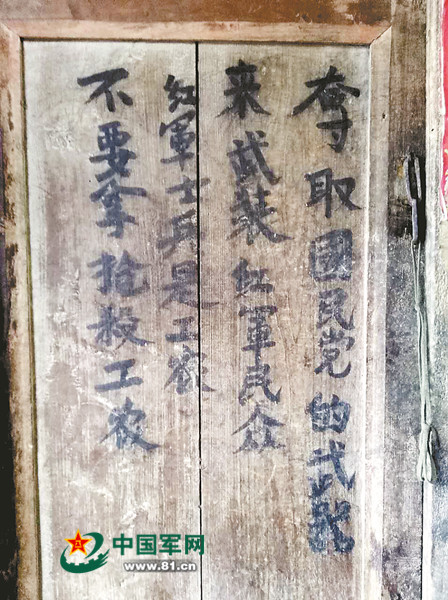 夺取國民党的武
来武裝红軍民众
红軍士兵是工农
不要拿枪殺工农
中国军网
www.81.cn